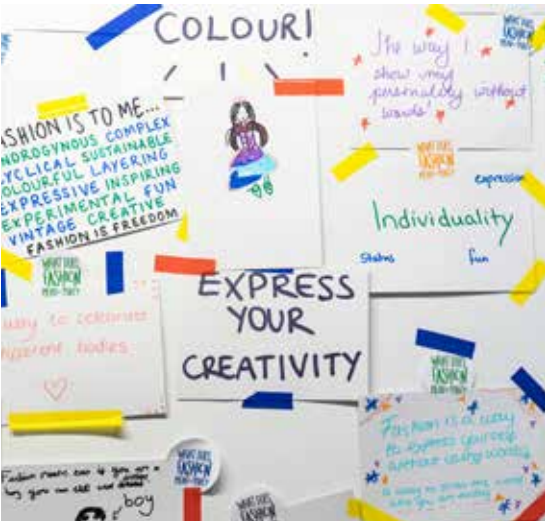 COLOUR!
WHAT DOES
FASHION
MEAN TO
The way I
show my
personality without
words!
ASHION IS TO ME...
NDROGYNOUS COMPLEX
YCLICAL SUSTAINABLE
OLOURFUL LAYERING
EXPRESSIVE INSPIRING
EXPERIMENTAL FUN
VINTAGE CREATIVE
FASHION IS FREEDOM
WHAT DOES
FASHION
MEAN TO YOU?
expression
Individuality
Status
fun
WHAT DOES
FASHION
MEAN TO YOU?
way to celebrate
different bodies
EXPRESS
YOUR
CREATIVITY
WHAT DOES
FASHION
MEAN TO YOU?
Fashion is a way
to express yourself
without using words
WHAT DOES
FASHION
MEAN TO YOU?
boy
WHAT DOES
FASHION